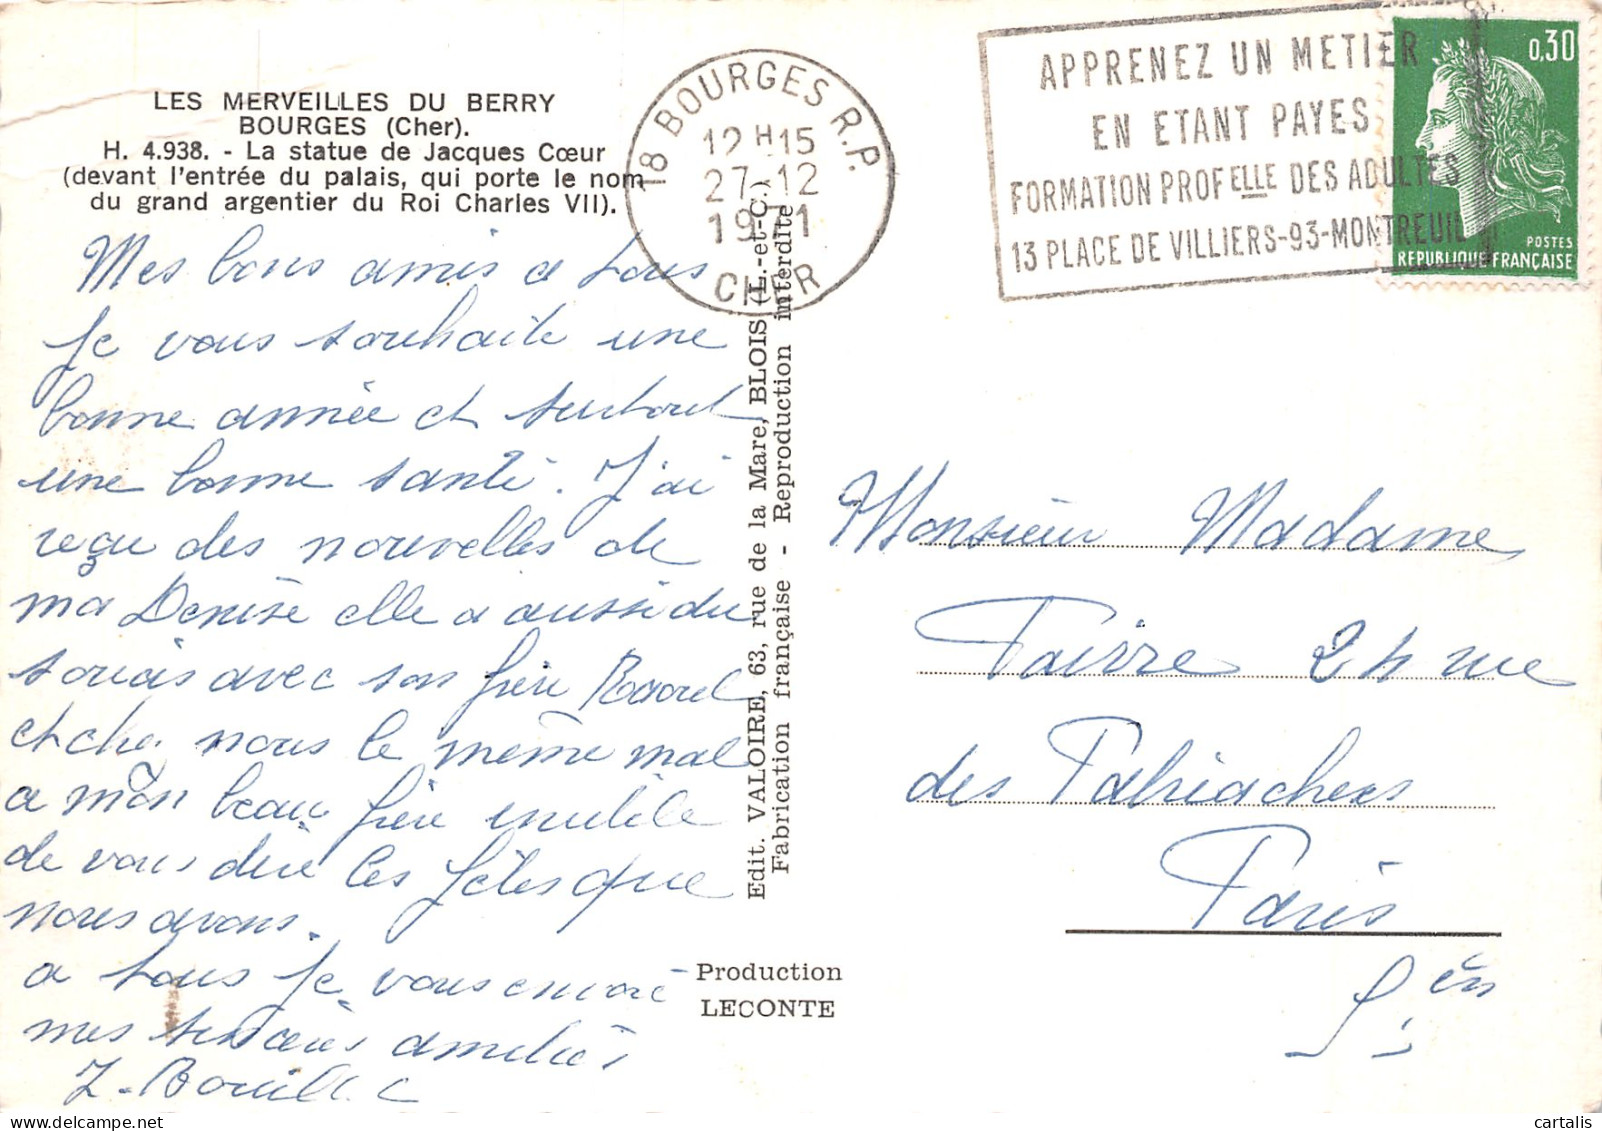 LES MERVEILLES DU BERRY
BOURGES (Cher).
H. 4.938. - La statue de Jacques Cœur
(devant l'entrée du palais, qui porte le nom
du grand argentier du Roi Charles VII).
18 BOURGES R.P.
12 H 15
27-12
1971
CHER
APPRENEZ UN METIER
EN ETANT PAYES
FORMATION PROFELLE DES ADULTES
13 PLACE DE VILLIERS-93-MONTREUIL
0,30
POSTES
REPUBLIQUE FRANÇAISE
Mes bons amis a tous
Je vous souhaite une
bonne année et surtout
une bonne santé. J'ai
reçu des nouvelles de
ma Denise elle a aussi du
soucis avec son frère Raoul
et chez nous le même mal
a mon beau frère inutile
de vous dire les fêtes que
nous avons.
a tous je vous envoie
mes sincères amitiés
Edit. VALOIRE, 63, rue de la Mare, BLOIS (L.-et-C.)
Fabrication française - Reproduction interdite
Production
LECONTE
Monsieur Madame
Faivre 24 rue
des
Paris
cartalis